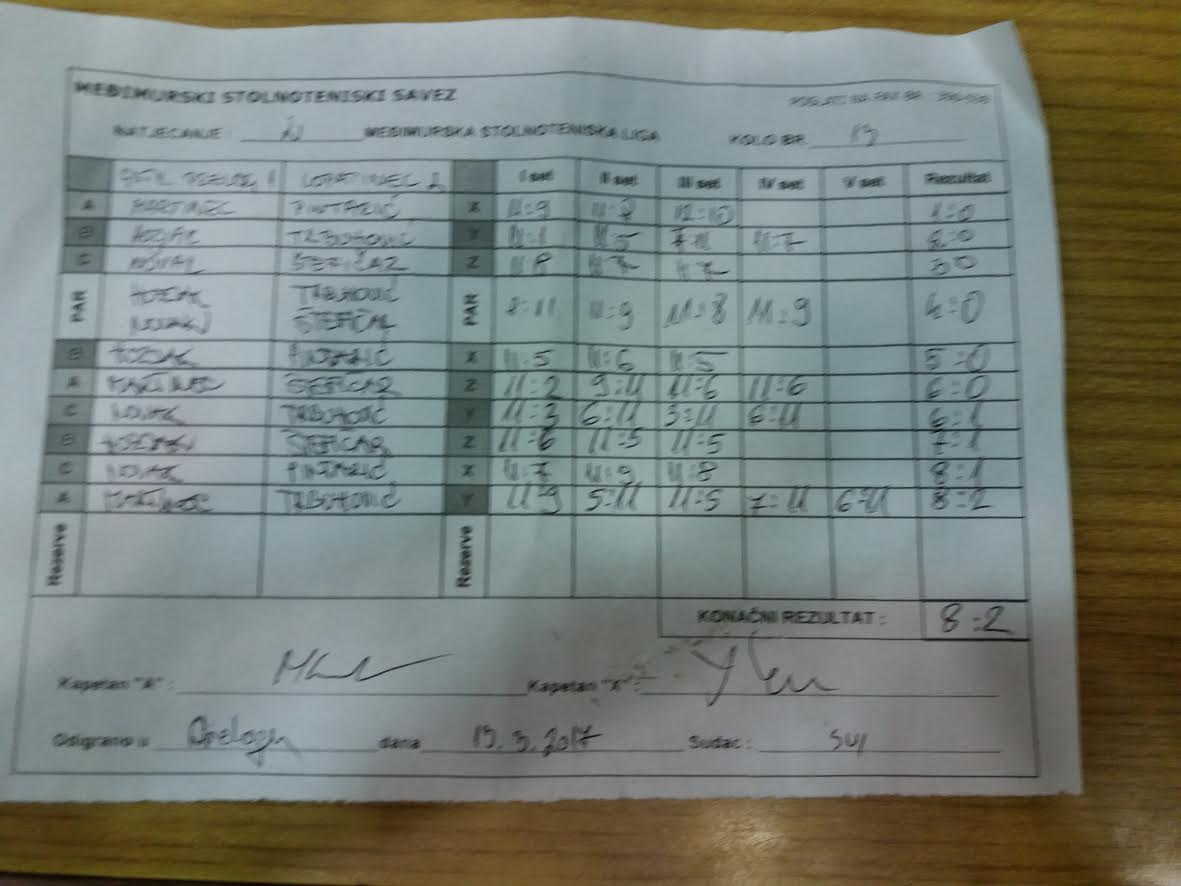 MEĐIMURSKI STOLNOTENISKI SAVEZ
POSLATI NA FAX BR.
NATJECANJE MEĐIMURSKA STOLNOTENISKA LIGA KOLO BR. 13
I set II set III set IV set V set Rezultat
A MARTINEC PINTARIĆ X 11:9 12:10 1:0
B HOZJAK TRBUHOVIĆ Y 11:5 7:11 11:7 2:0
C NOVAK ŠTEFIČAR Z 3:0
PAR HOZJAK TRBUHOVIĆ PAR 8:11 11:9 11:8 11:9 4:0
NOVAK ŠTEFIČAR
B HOZJAK PINTARIĆ X 11:5 11:6 11:5 5:0
A MARTINEC ŠTEFIČAR Z 11:2 9:11 11:6 11:6 6:0
C NOVAK TRBUHOVIĆ Y 11:3 6:11 6:11 6:1
B HOZJAK ŠTEFIČAR Z 11:6 11:5 11:5 7:1
C NOVAK PINTARIĆ X 11:7 11:9 11:8 8:1
A MARTINEC TRBUHOVIĆ Y 11:9 5:11 11:5 7:11 6:11 8:2
Reserve Reserve
KONAČNI REZULTAT : 8:2
Kapetan "A" : Kapetan "X" :
Odigrano u Prelogu dana 2017 Sudac :